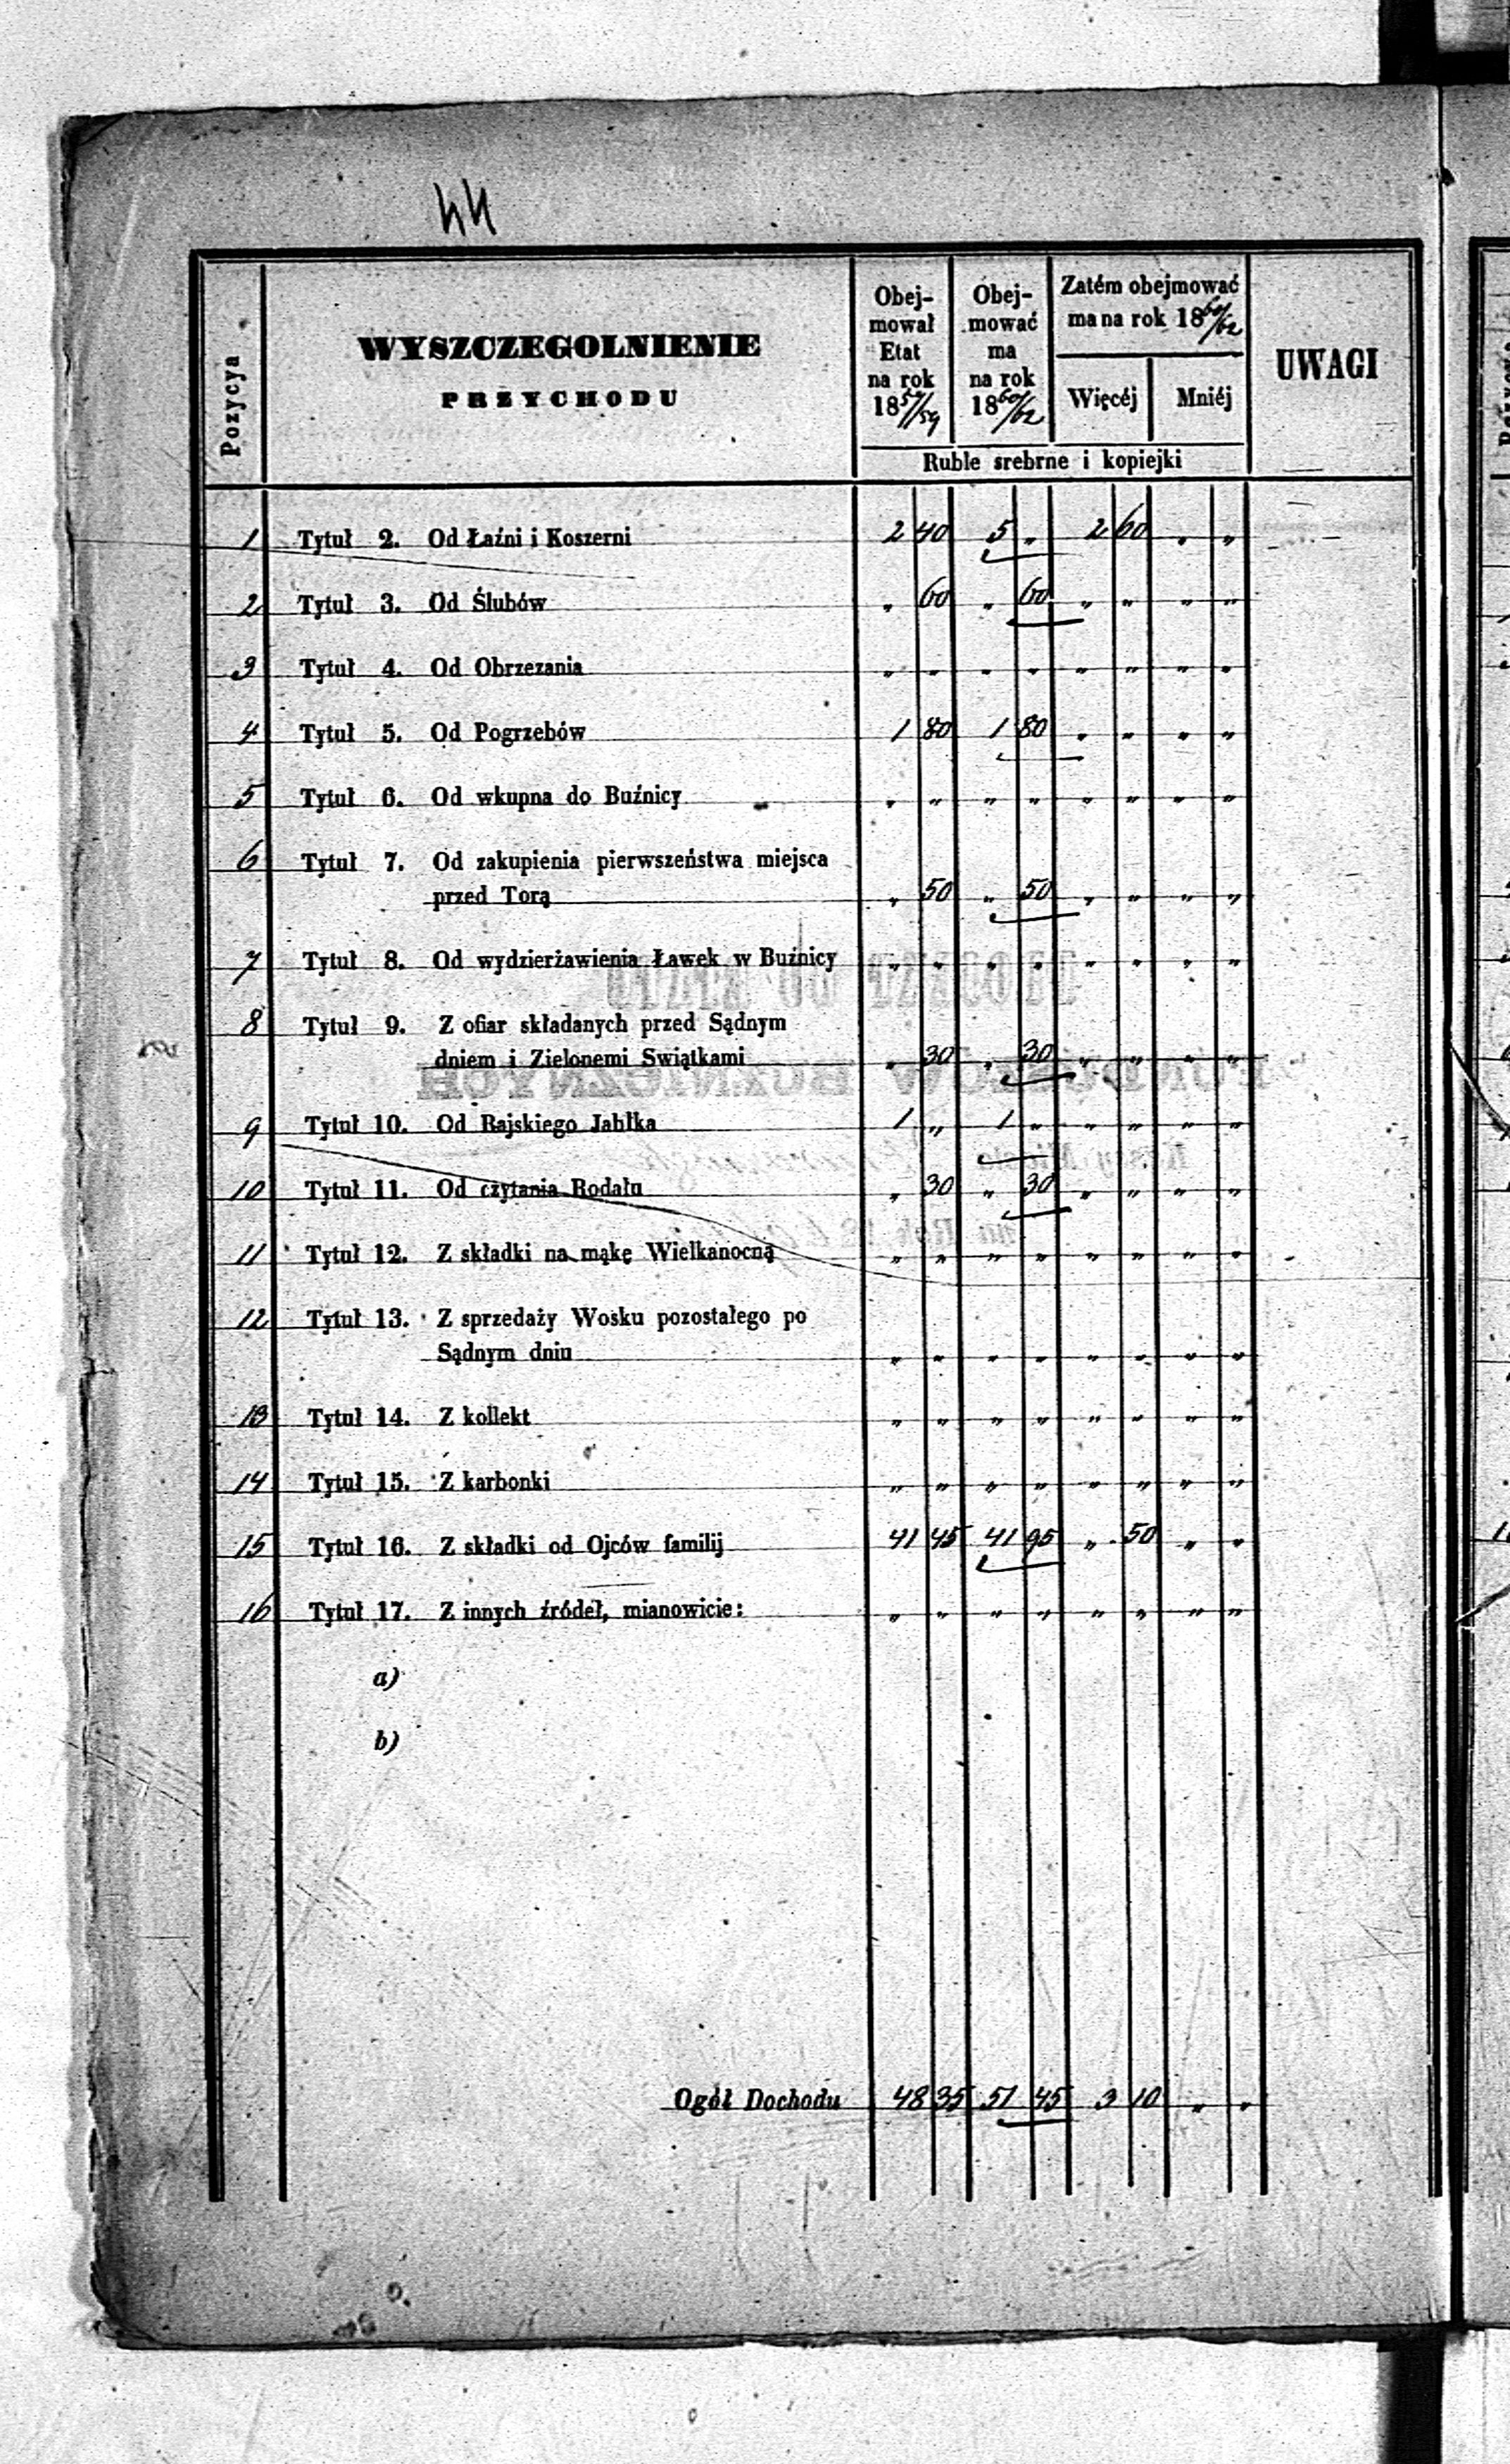 44
Pozycya
WYSZCZEGOLNIENIE
PRZYCHODU
Obej-
mował
Etat
na rok
1857/59
Obej-
mować
ma
na rok
1860/62
Zatém obejmować
ma na rok 1860/62
Więcéj Mniéj
UWAGI
Ruble srebrne i kopiejki
1 Tytuł 2. Od Łaźni i Koszerni 2 40 5 " 2 60 " "
2 Tytuł 3. Od Ślubów " 60 " 60 " " " "
3 Tytuł 4. Od Obrzezania " " " " " " " "
4 Tytuł 5. Od Pogrzebów 1 80 1 80 " " " "
5 Tytuł 6. Od wkupna do Buźnicy " " " " " " " "
6 Tytuł 7. Od zakupienia pierwszeństwa miejsca
przed Torą " 50 " 50 " " " "
7 Tytuł 8. Od wydzierżawienia Ławek w Buźnicy " " " " " " " "
8 Tytuł 9. Z ofiar składanych przed Sądnym
dniem i Zielonemi Swiątkami " 30 " 30 " " " "
9 Tytuł 10. Od Rajskiego Jabłka 1 " 1 " " " " "
10 Tytuł 11. Od czytania Rodału " 30 " 30 " " " "
11 Tytuł 12. Z składki na mąkę Wielkanocną " " " " " " " "
12 Tytuł 13. Z sprzedaży Wosku pozostałego po
Sądnym dniu " " " " " " " "
13 Tytuł 14. Z kollekt " " " " " " " "
14 Tytuł 15. Z karbonki " " " " " " " "
15 Tytuł 16. Z składki od Ojców familij 41 45 41 95 " 50 " "
16 Tytuł 17. Z innych źródeł, mianowicie: " " " " " " " "
a)
b)
Ogół Dochodu 48 35 51 45 3 10 " "